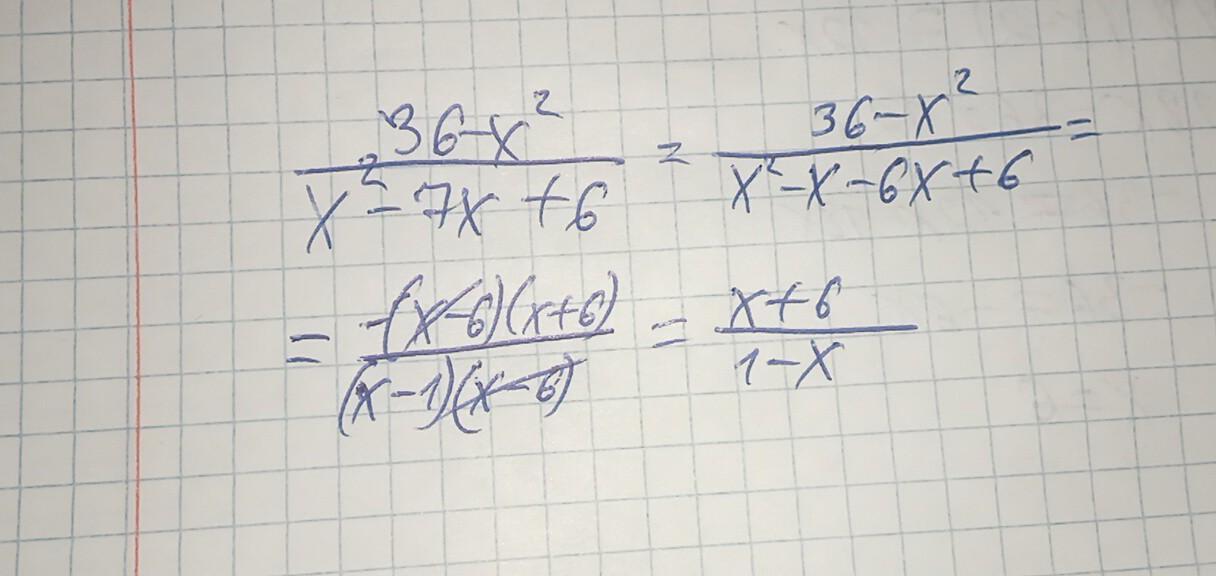 (36-x²)/(x²-7x+6) = (36-x²)/(x²-x-6x+6) =
= (-(x-6)(x+6))/((x-1)(x-6)) = (x+6)/(1-x)